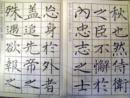 秋也然侍衛
之臣不懈於
內忠志之士
忘身於外者
蓋追先帝之
殊遇欲報之